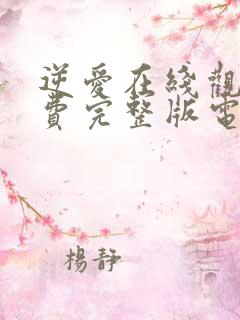 逆愛在綫觀
費完整版電
楊靜